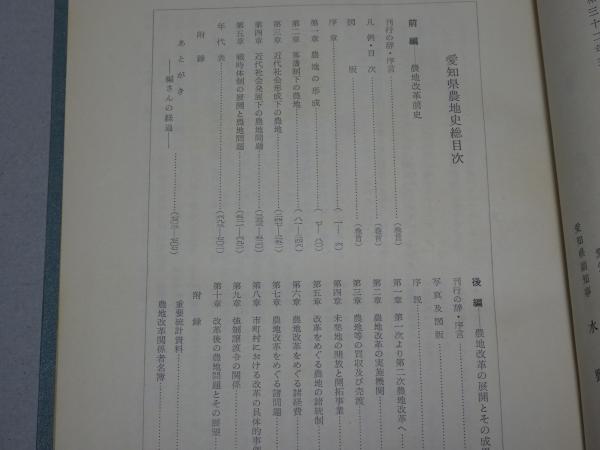 愛知県農地史総目次
前編 農地改革前史
刊行の辞・序言……(巻首)
凡例・目次……(巻首)
図版……(巻首)
序章
第一章 農地の形成
第二章 幕藩制下の農地
第三章 近代社会形成下の農地
第四章 近代社会発展下の農地問題
第五章 戦時体制の展開と農地問題
年代表
附録
あとがき
―編さんの経過―
後編 農地改革の展開とその成果
刊行の辞・序言
写真及図版
序説
第一章 第一次より第二次農地改革へ
第二章 農地改革の実施機関
第三章 農地等の買収及び売渡
第四章 未墾地の開放と開拓事業
第五章 改革をめぐる農地の諸統制
第六章 農地改革をめぐる諸経費
第七章 農地改革をめぐる諸問題
第八章 市町村における改革の具体的事例
第九章 強制譲渡令の関係
第十章 改革後の農地問題とその展望
附録
重要統計資料
農地改革関係者名簿
愛知県副知事
水